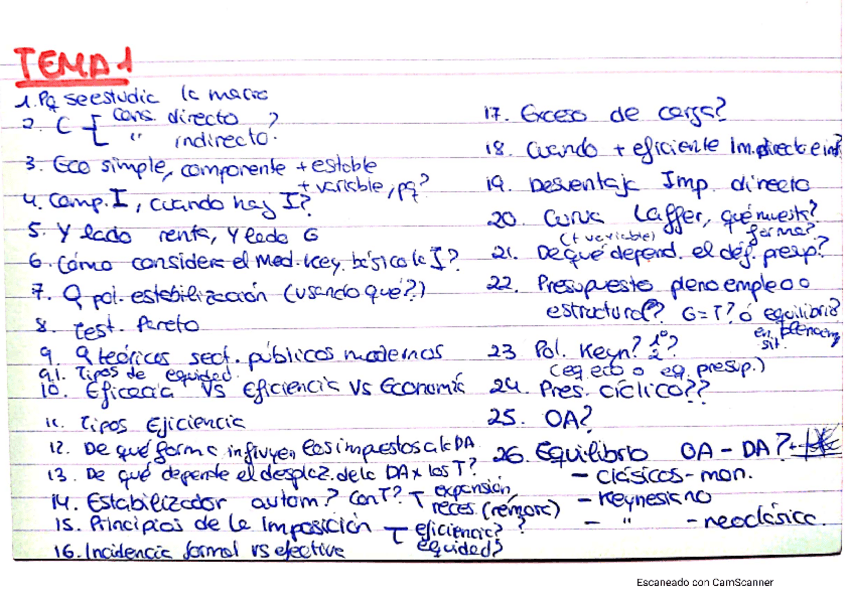 TEMA 1
1. Pq se estudia la macro
2. C [ Cons. directo ?
" indirecto.
3. Eco simple, componente + estable
+ variable, pq?
4. Comp. I, cuando hay I?
5. Y lado renta, Y lado G
6. Cómo considera el Mod. Key. básico la I?
7. Q pol. estabilización (usando qué?)
8. Test. Pareto
9. Q teóricos sect. públicos modernos
9.1. Tipos de equidad.
10. Eficacia vs Eficiencia vs Economía
11. Tipos Eficiencia
12. De qué forma influyen los impuestos a la DA
13. De qué depende el desplaz. de la DA x los T?
14. Estabilizador autom? Con T? expansión,
reces (rémora)
15. Principios de la Imposición eficiencia? ?
equidad?
16. Incidencia formal vs efectiva
17. Exceso de carga?
18. Cuando + eficiente Im. directo e ind
19. Desventaja Imp. directo
20. Curva Laffer, qué muestra?
(+ variable) forma?
21. De qué depend. el déf. presup?
22. Presupuesto pleno empleo o
estructural? G=T? ó equilibrio?
en
sit.
23 Pol. Keyn? 1º ?
2º
(eq. eco o eq. presup.)
24. Pres. cíclico??
25. OA?
26. Equilibrio OA - DA?
- clásicos - mon.
- Keynesiano
- " - neoclásica.
Escaneado con CamScanner